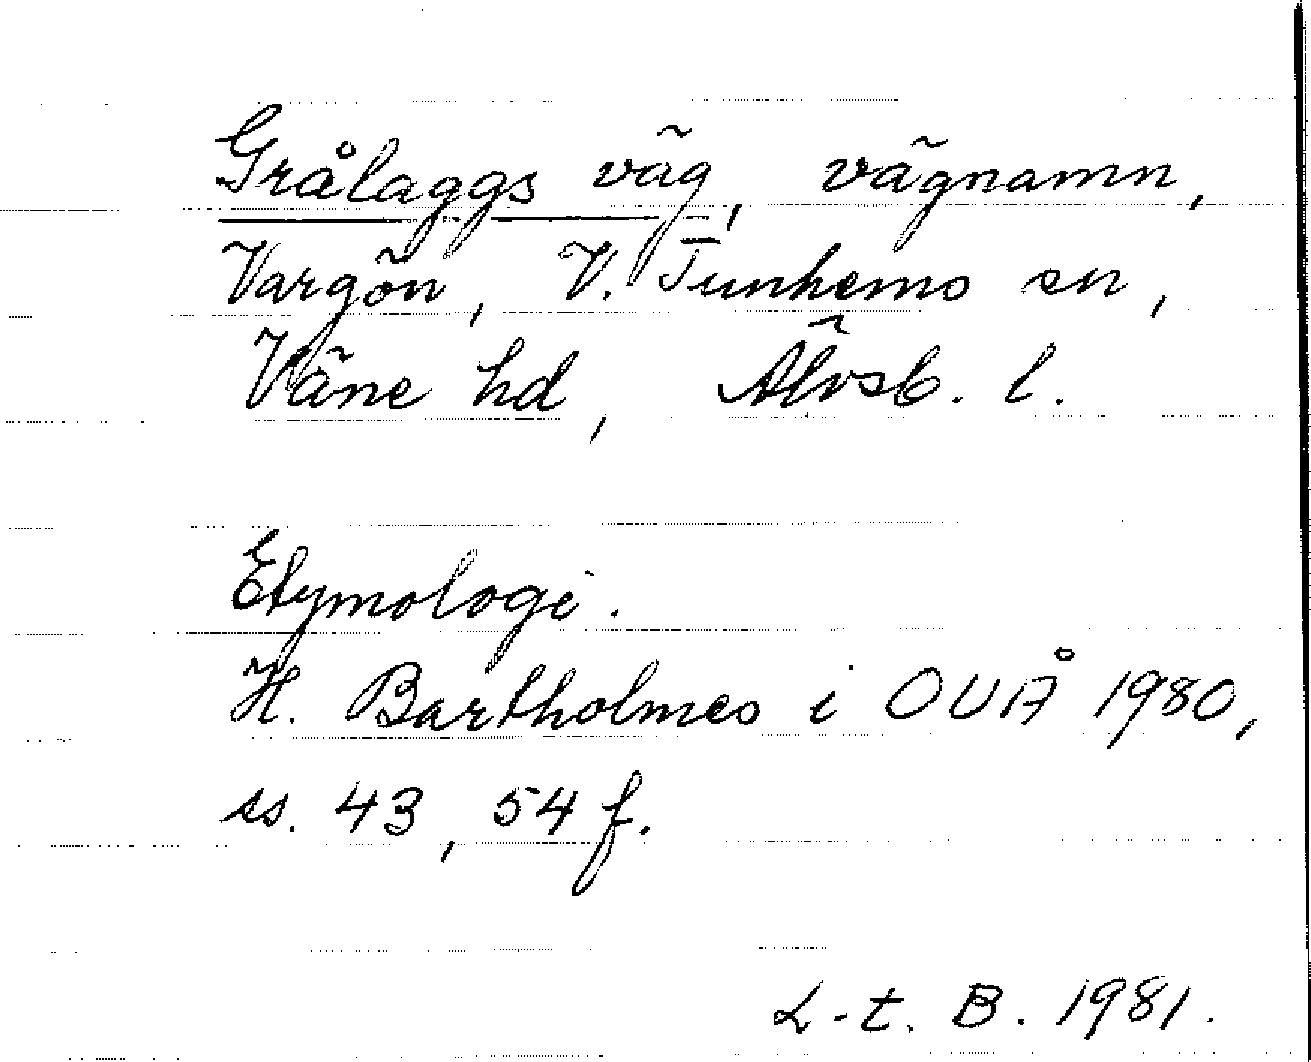 Grålaggs väg, vägnamn,
Vargön, V. Tunhems sn,
Väne hd, Älvsb. l.
Etymologi.
H. Bartholmes i OUÅ 1980,
ss. 43, 54 f.
L-t. B. 1981.